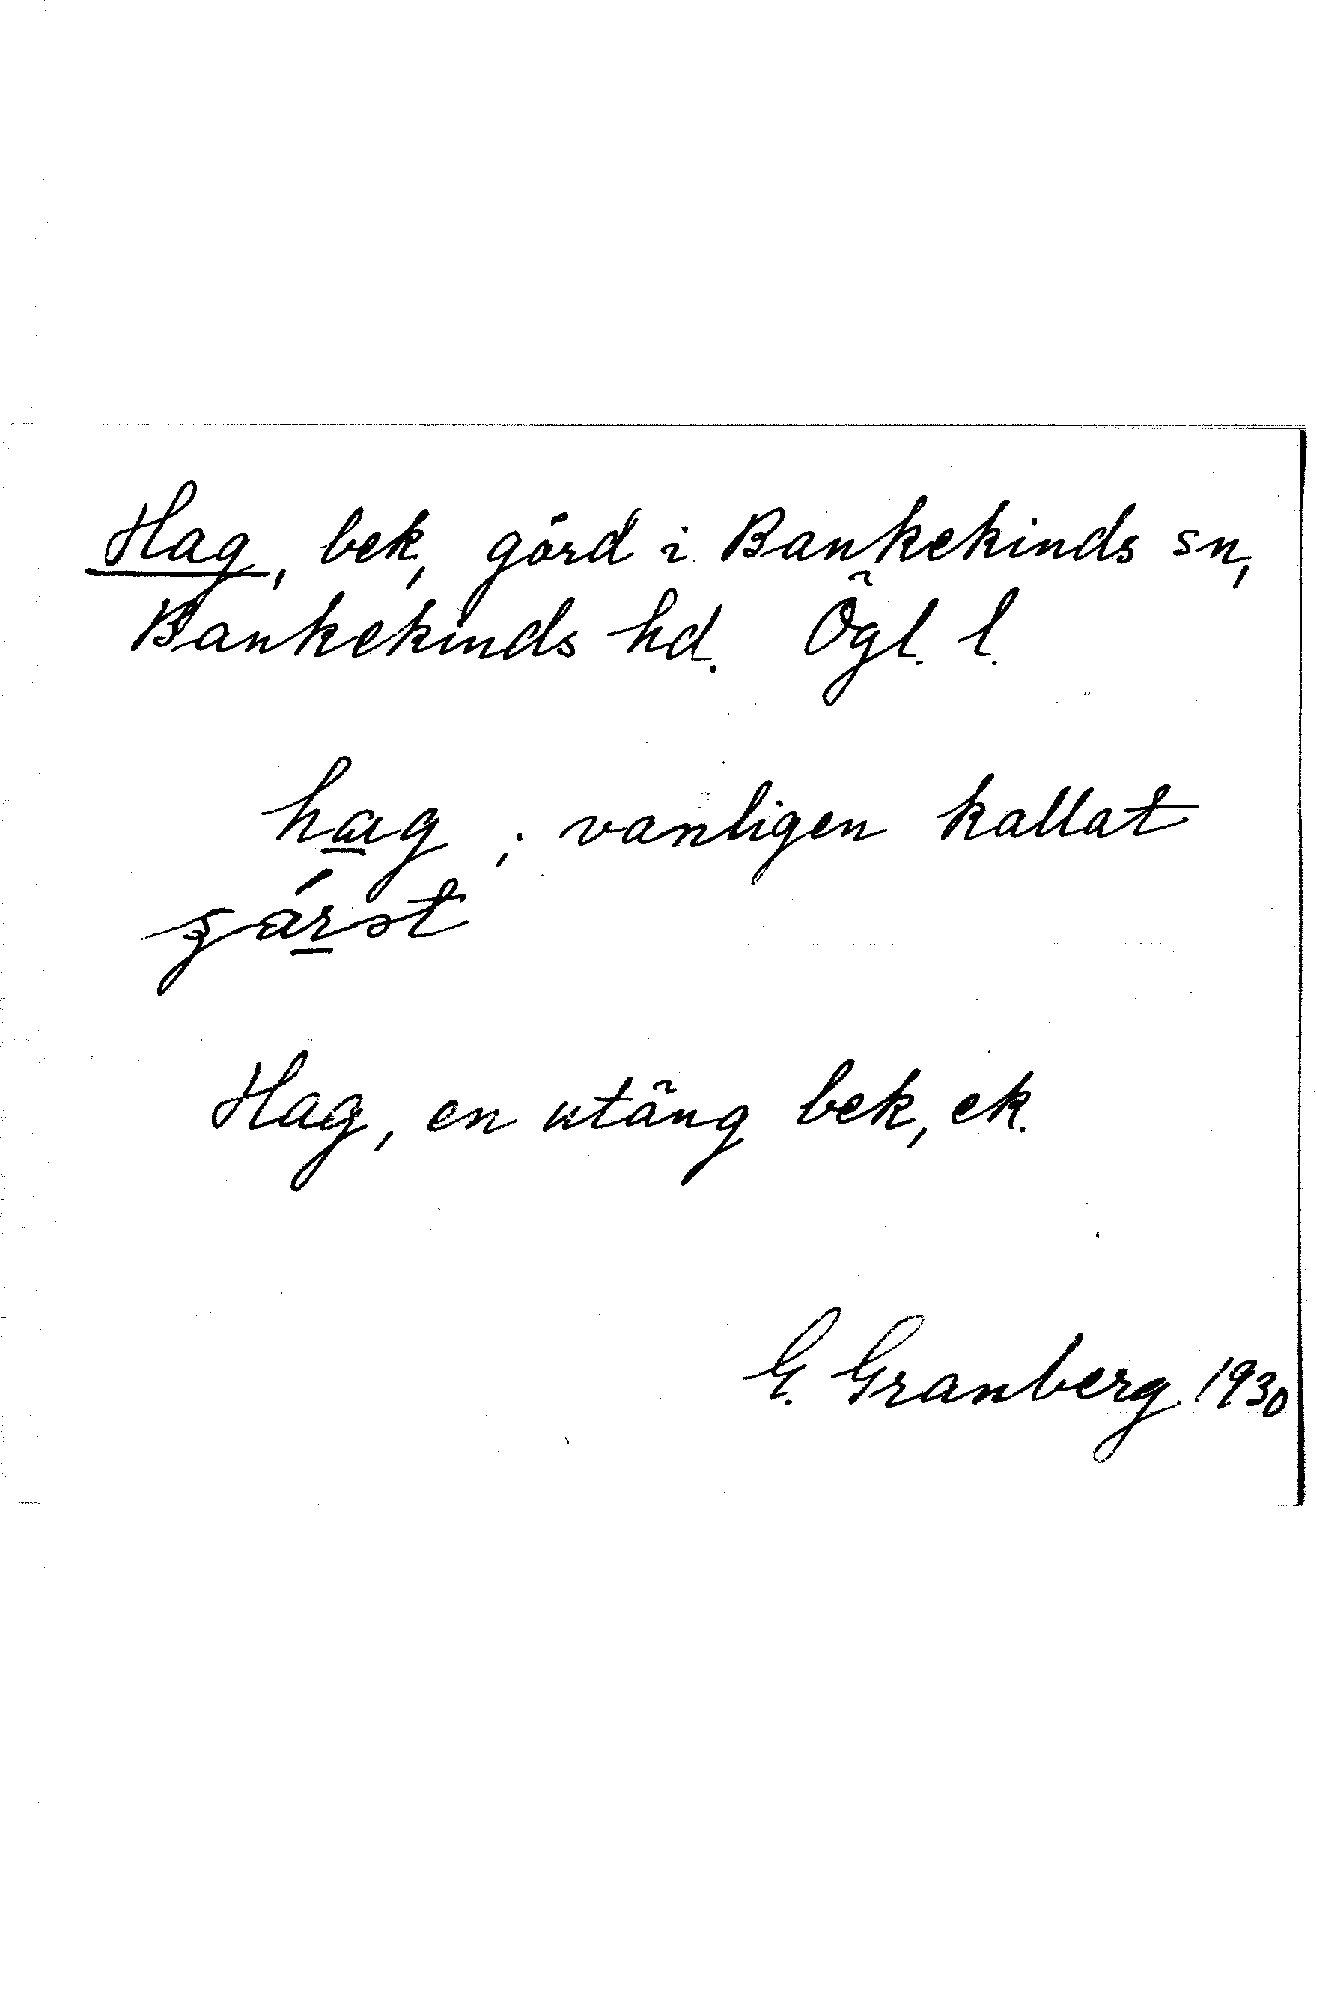 Hag, bek, gård i Bankekinds sn,
Bankekinds hd. Ögl. l.
hag ; vanligen kallat
Hag, en utäng bek, ek.
G. Granberg 1930